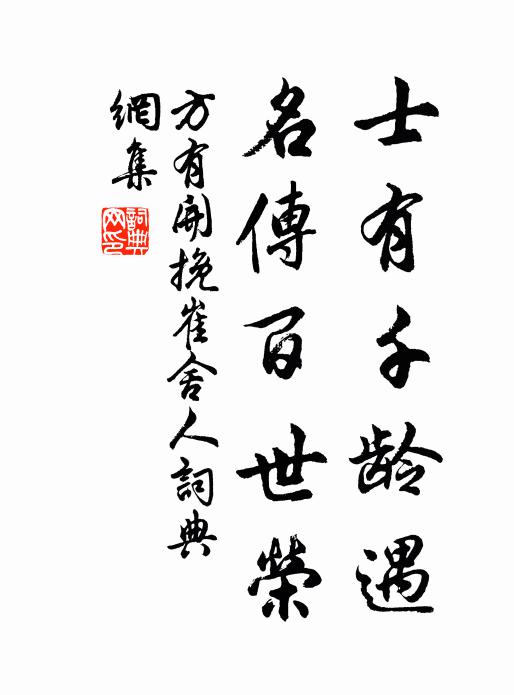 士有千龄遇
名傳百世榮
方有開挽崔舍人詞典
網集
詞典网印